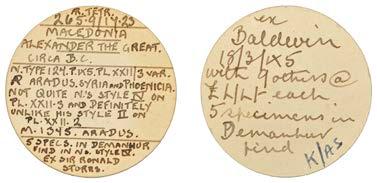 Æ. TETR.
265-9/17-23
MACEDONIA
ALEXANDER THE GREAT.
CIRCA B.C.
N. TYPE 124. P.IX5, PL.XXII/3 VAR.
ARADUS. SYRIA AND PHOENICIA.
NOT QUITE N.'S STYLE IV ON
PL.XXII-3 AND DEFINITELY
UNLIKE HIS STYLE II ON
PL.XXII.2
M.1345. ARADUS.
5 SPECS. IN DEMANHUR
FIND IN N.'S STYLE IV.
EX SIR RONALD
STORRS.
ex
Baldwin
18/3/1X5
with 9 others @
£4/4/- each.
5 specimens in
Demanhur
find
K/AS